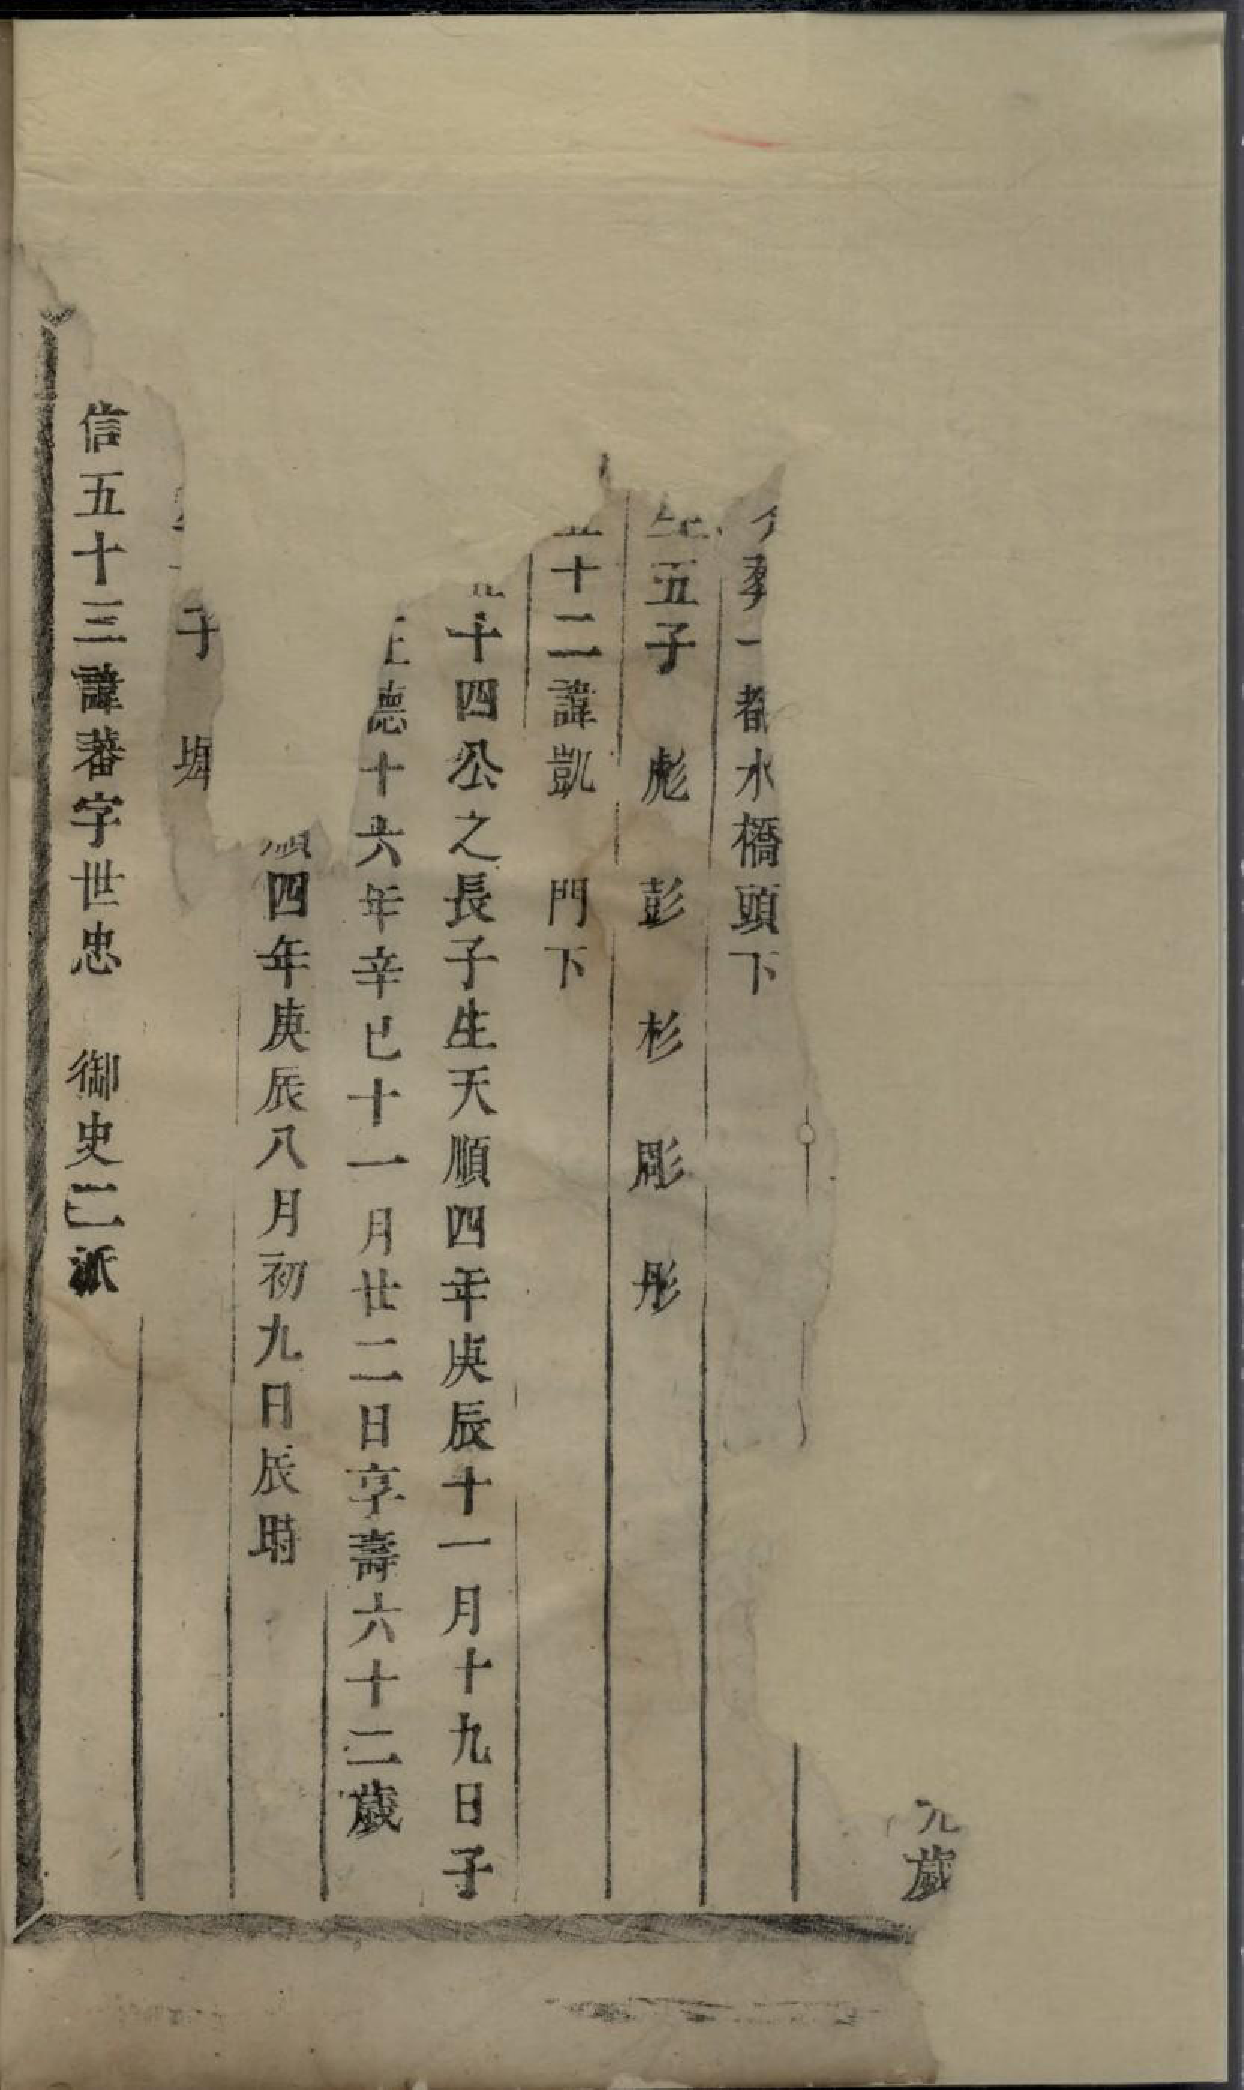 九歲
葬一都水橋頭下
生五子 彪 彭 杉 彫 彤
五十二諱凱 門下
十四公之長子生天順四年庚辰十一月十九日子
正德十六年辛巳十一月廿二日享壽六十二歲
順四年庚辰八月初九日辰時
子 堺
信五十三諱蕃字世忠 御史二派